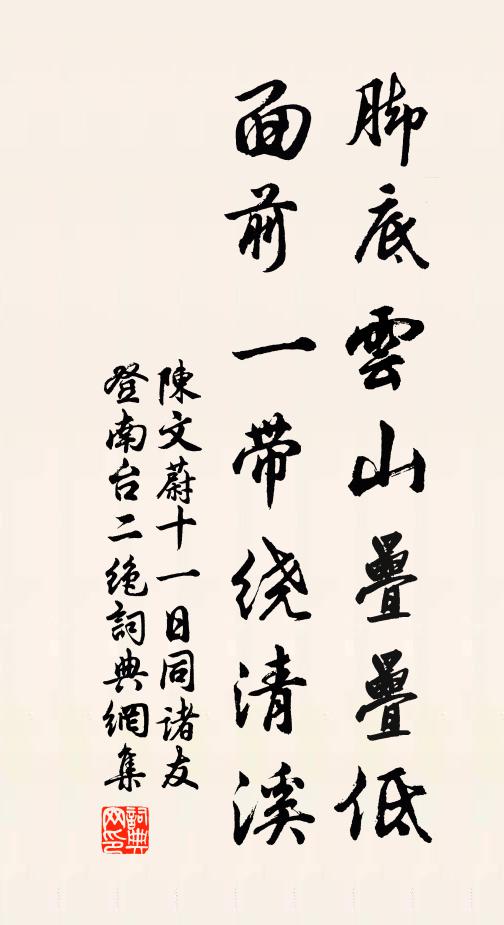 脚底雲山疊疊低
面前一带绕清溪
陳文蔚十一日同諸友
登南台二绝詞典網集
詞典網印